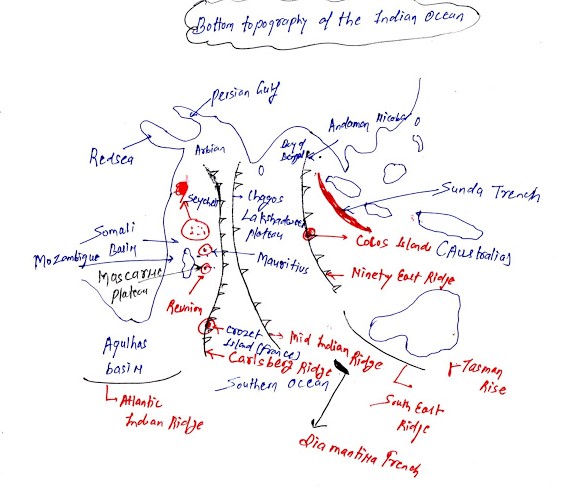 Bottom topography of the Indian Ocean
Persian Gulf
Redsea
Arbian
Bay of
Bengal
Andaman Nicobar
Sunda Trench
Seychell
Chagos
Lakshadweep
plateau
Somali
Basin
Mozambique
Mascarene
plateau
Mauritius
Cocos Islands (Australia)
Ninety East Ridge
Reunion
Crozet
Island (France)
Mid Indian Ridge
Carlsberg Ridge
Southern Ocean
Agulhas
basin
Atlantic
Indian Ridge
Tasman
Rise
South East
Ridge
Diamantina Trench